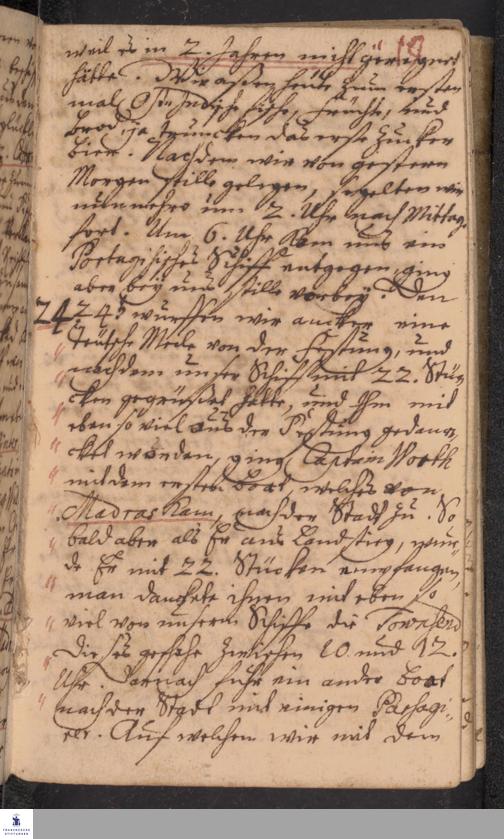 weil es in 2. Jahren nicht geregnet
hätte. Wir aßen heute zum ersten
mal Ost Indische Fische, Früchte, und
Brod, ja truncken das erste Zucker
bier. Nachdem wir von gestern
Morgen stille gelegen, segelten wir
nunmehro um 2. Uhr nach Mittag
fort. Um 6. Uhr kam uns ein
Portugisisches Schiff entgegen, ging
aber bey uns stille vorbey. Den
24 24ᵗ wurffen wir ancker eine
Teutsche Meile von der Festung, und
nachdem unser Schiff mit 22. Stü-
cken gegrüßet hatte, und Ihm mit
eben so viel aus der Festung gedan-
cket worden, ging Captain Worth
mit dem ersten Boot, welches von
Madras kam, nach der Stadt zu. So
bald aber als Er ans Land stieg, wur-
de Er mit 22. Stücken empfangen,
man danckete ihnen mit eben so
viel von unserm Schiffe die Townsend
Dieses geschahe zwischen 10. und 12.
Uhr. Darnach fuhr ein ander Boot
nach der Stadt mit einigen Passagi-
rer. Auf welchen wir mit dem
FRANCKESCHE
STIFTUNGEN